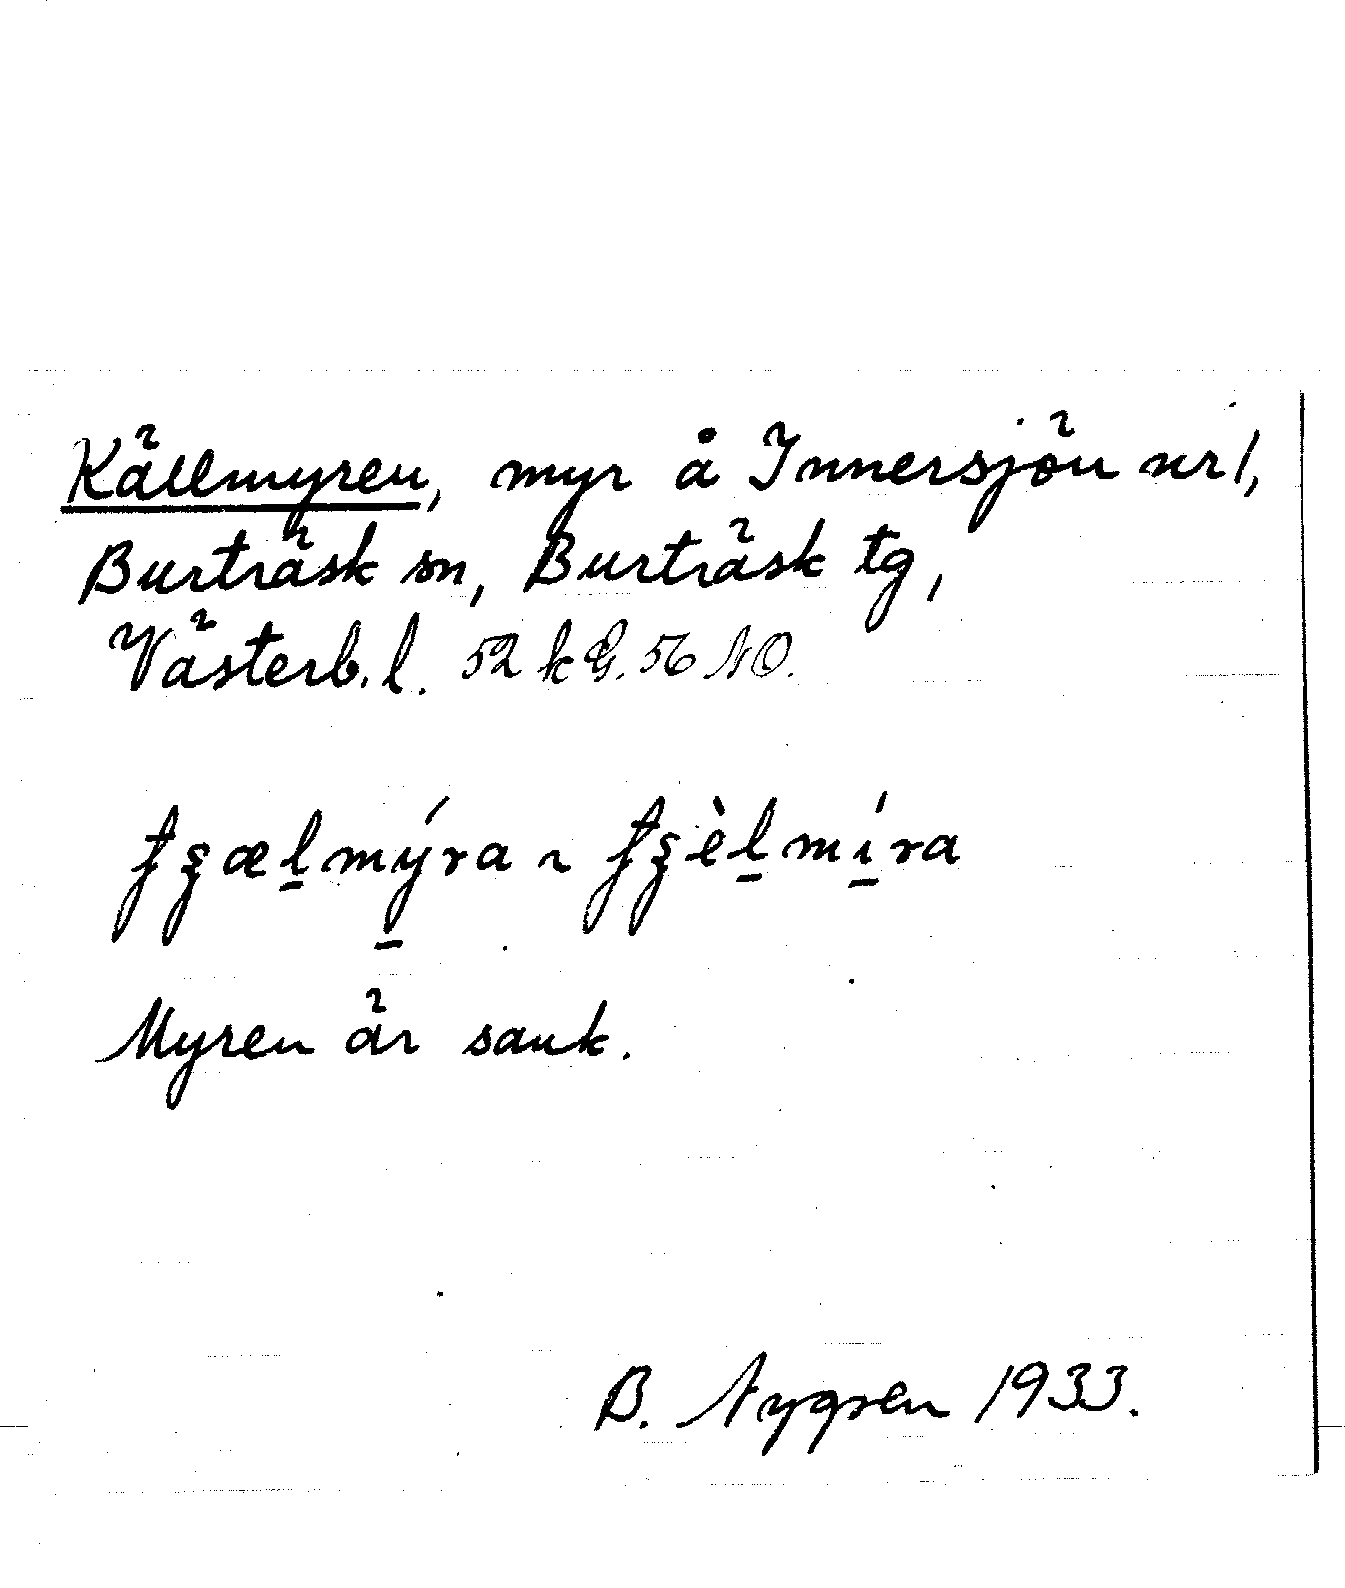 Källmyren, myr å Innersjön nr 1,
Burträsk sn, Burträsk tg,
Västerb. l. 52 k G. 56 NO.
Myren är sank.
B. Nygren 1933.